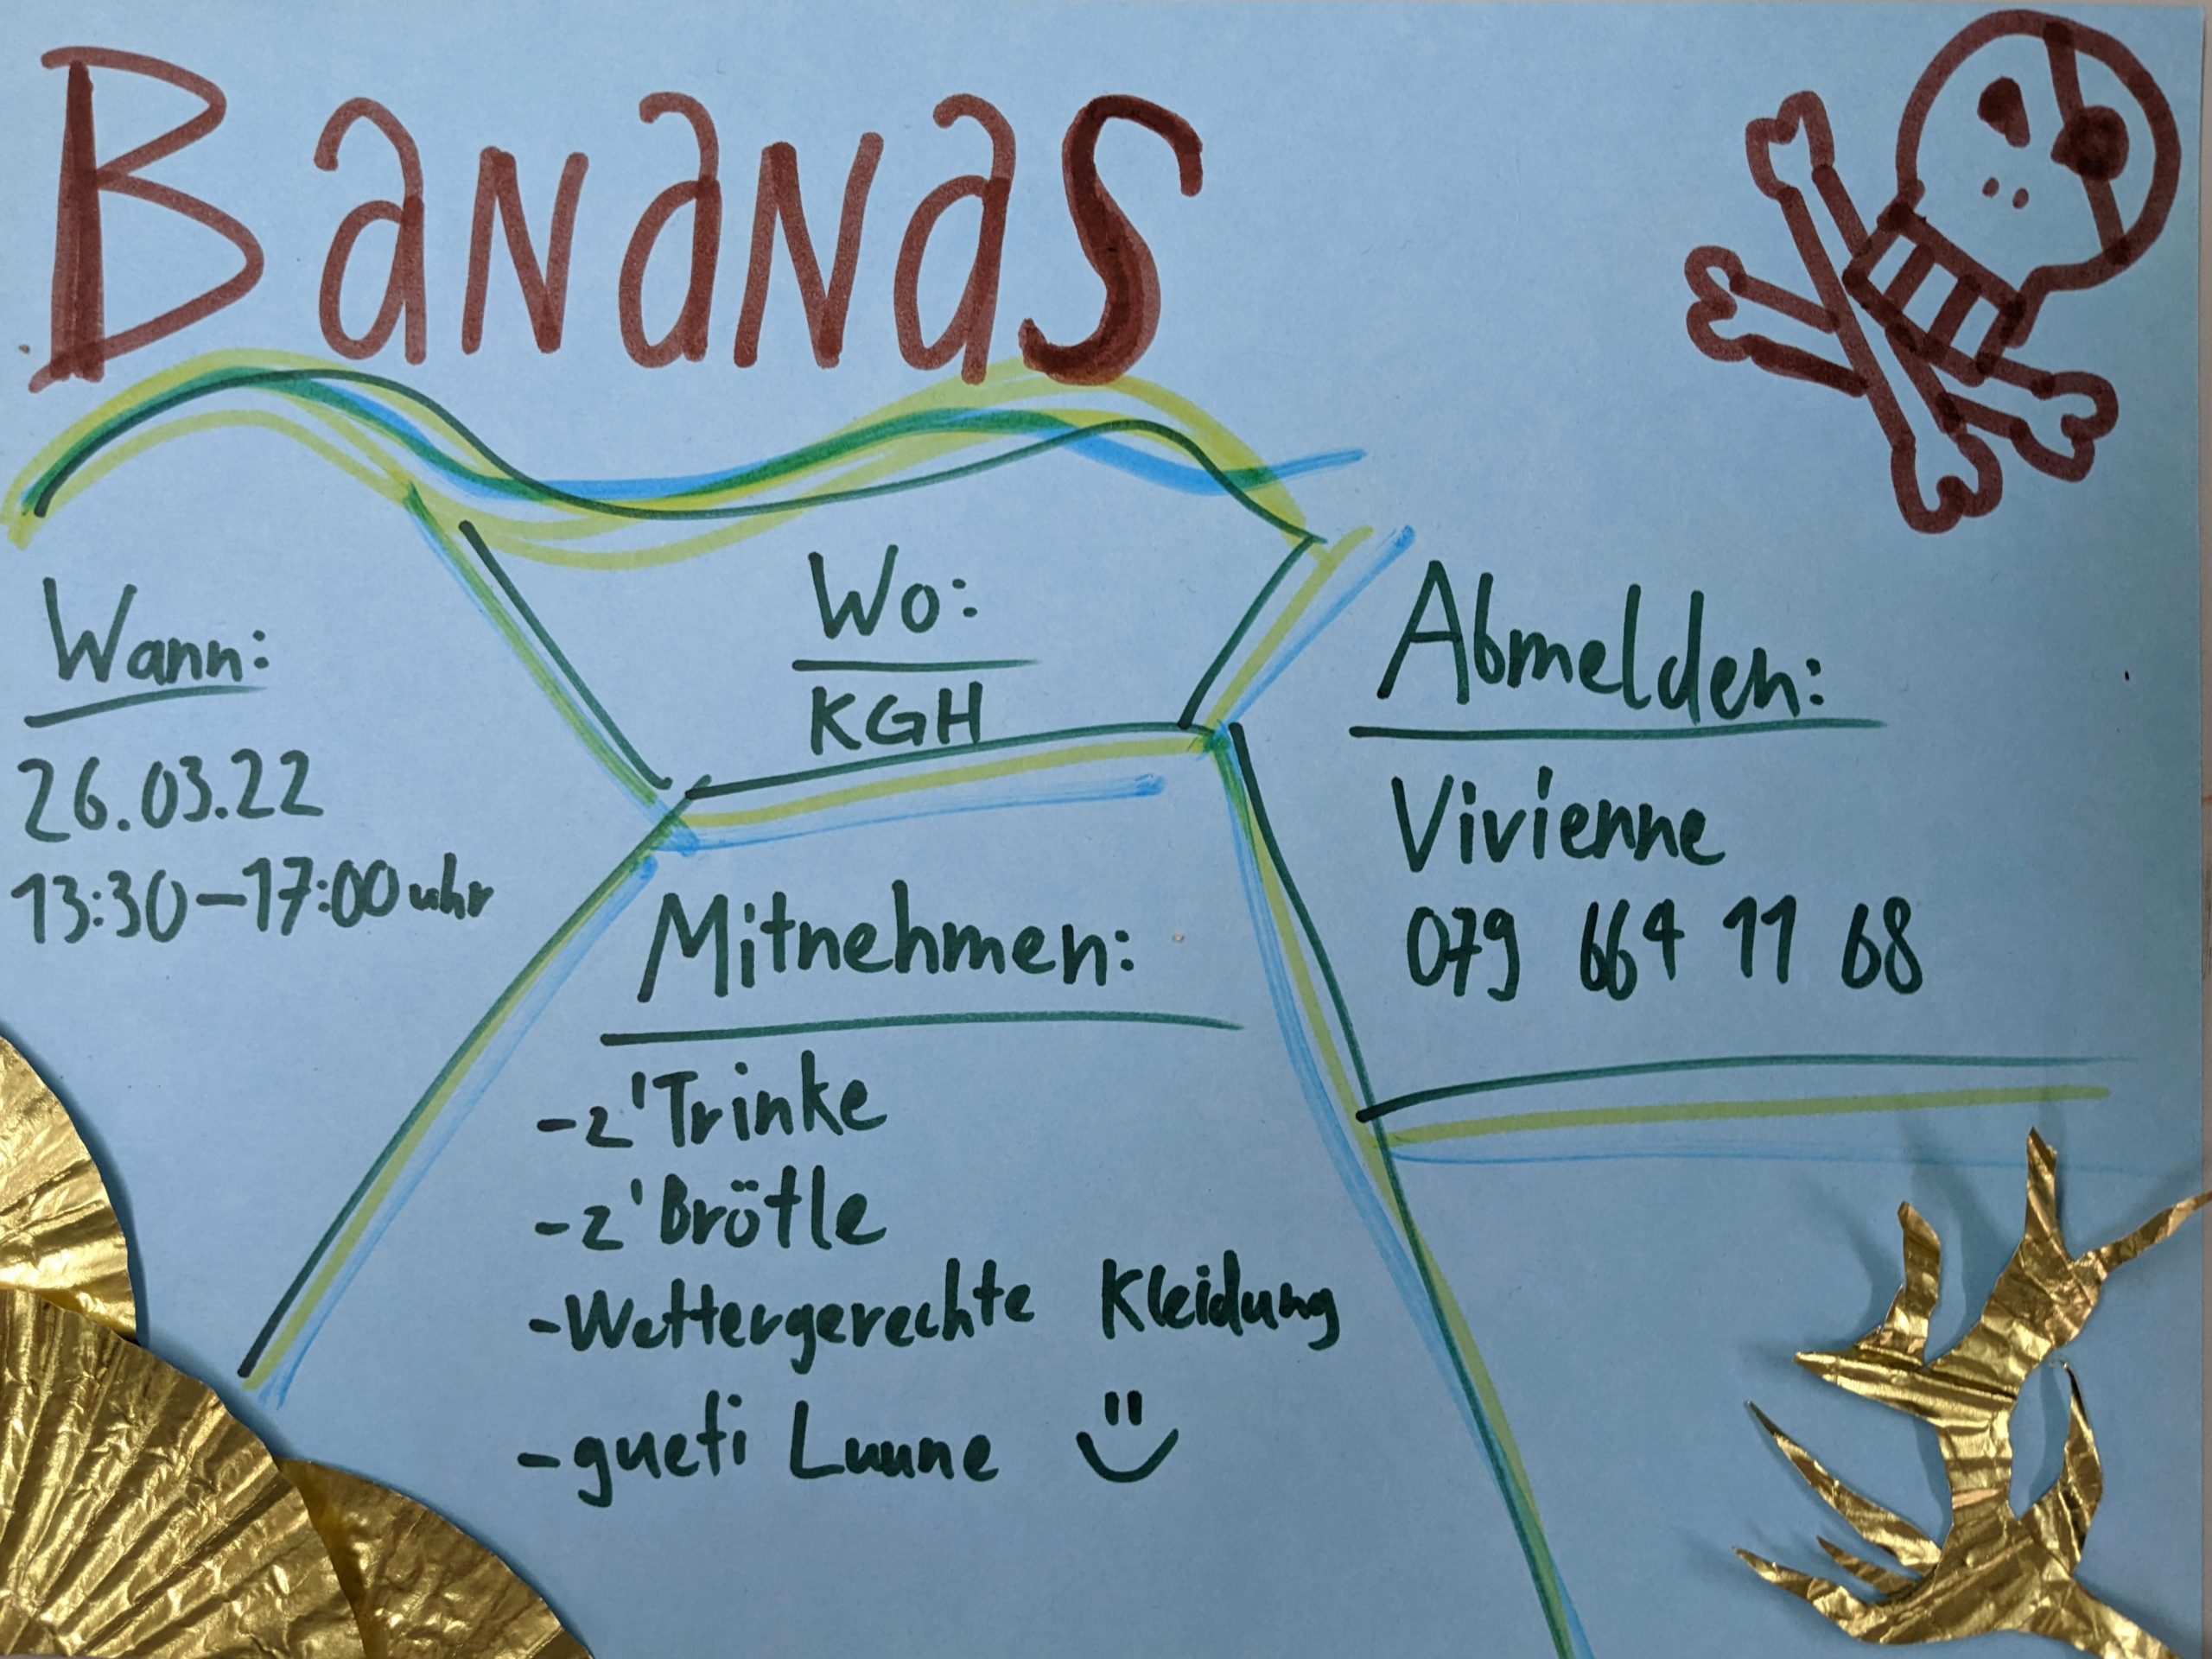 BaNaNaS
Wann:
26.03.22
13:30-17:00 uhr
Wo:
KGH
Abmelden:
Vivienne
079 664 11 68
Mitnehmen:
-z'Trinke
-z'Brötle
-Wettergerechte Kleidung
-gueti Luune